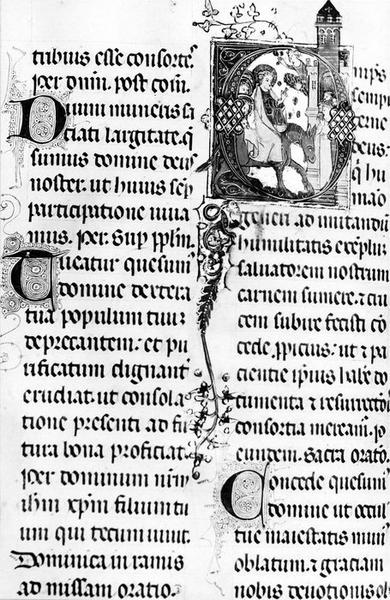 tribus esse consortes
per dnm. post com.
Diuini muneris sa
ciati largitate. q̄
sumus domine deus
noster. ut huius sep
participatione uiua
mus. Per. Sup pplm.
Tueatur quesum
domine dextera
tua populum tuum
deprecantem: et pu
rificatum dignanter
erudiat. ut consola
tione presenti ad fu
tura bona proficiat.
Per dominum nrm
ihm xpm filium tu
um qui tecum uiuit.
Dominica in ramis
ad missam oratio.
Omnips
sempi
terne
deus.
q̄ hu
mano
generi ad imitandū
humilitatis exemplū
saluatorem nostrum
carnem sumere. ⁊ cru
cem subire fecisti cō
cede ppicius: ut ⁊ pa
cientie ipsius habe do
cumenta ⁊ resurrectōis
consortia meream. p
eundem. Sacra orato.
Concede quesum
domine ut oculi
tue maiestatis mun
oblatum. ⁊ graciam
nobis deuotionis ob